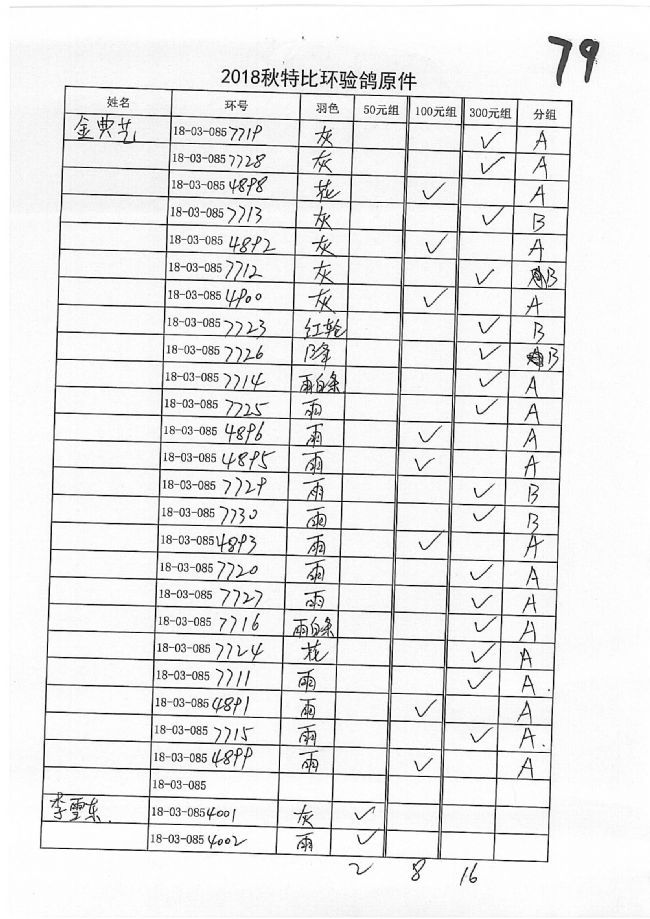 79
2018秋特比环验鸽原件
姓名 环号 羽色 50元组 100元组 300元组 分组
金典艺 18-03-085 7719 灰 ✓ A
18-03-085 7728 灰 ✓ A
18-03-085 4898 花 ✓ A
18-03-085 7713 灰 ✓ B
18-03-085 4892 灰 ✓ A
18-03-085 7712 灰 ✓ B
18-03-085 4900 灰 ✓ A
18-03-085 7723 红轮 ✓ B
18-03-085 7726 绛 ✓ B
18-03-085 7714 雨白条 ✓ A
18-03-085 7725 雨 ✓ A
18-03-085 4896 雨 ✓ A
18-03-085 4895 雨 ✓ A
18-03-085 7729 雨 ✓ B
18-03-085 7730 雨 ✓ B
18-03-085 4893 雨 ✓ A
18-03-085 7720 雨 ✓ A
18-03-085 7727 雨 ✓ A
18-03-085 7716 雨白条 ✓ A
18-03-085 7724 花 ✓ A
18-03-085 7711 雨 ✓ A.
18-03-085 4891 雨 ✓ A
18-03-085 7715 雨 ✓ A.
18-03-085 4899 雨 ✓ A
18-03-085
李雪东. 18-03-085 4001 灰 ✓
18-03-085 4002 雨 ✓
2 8 16